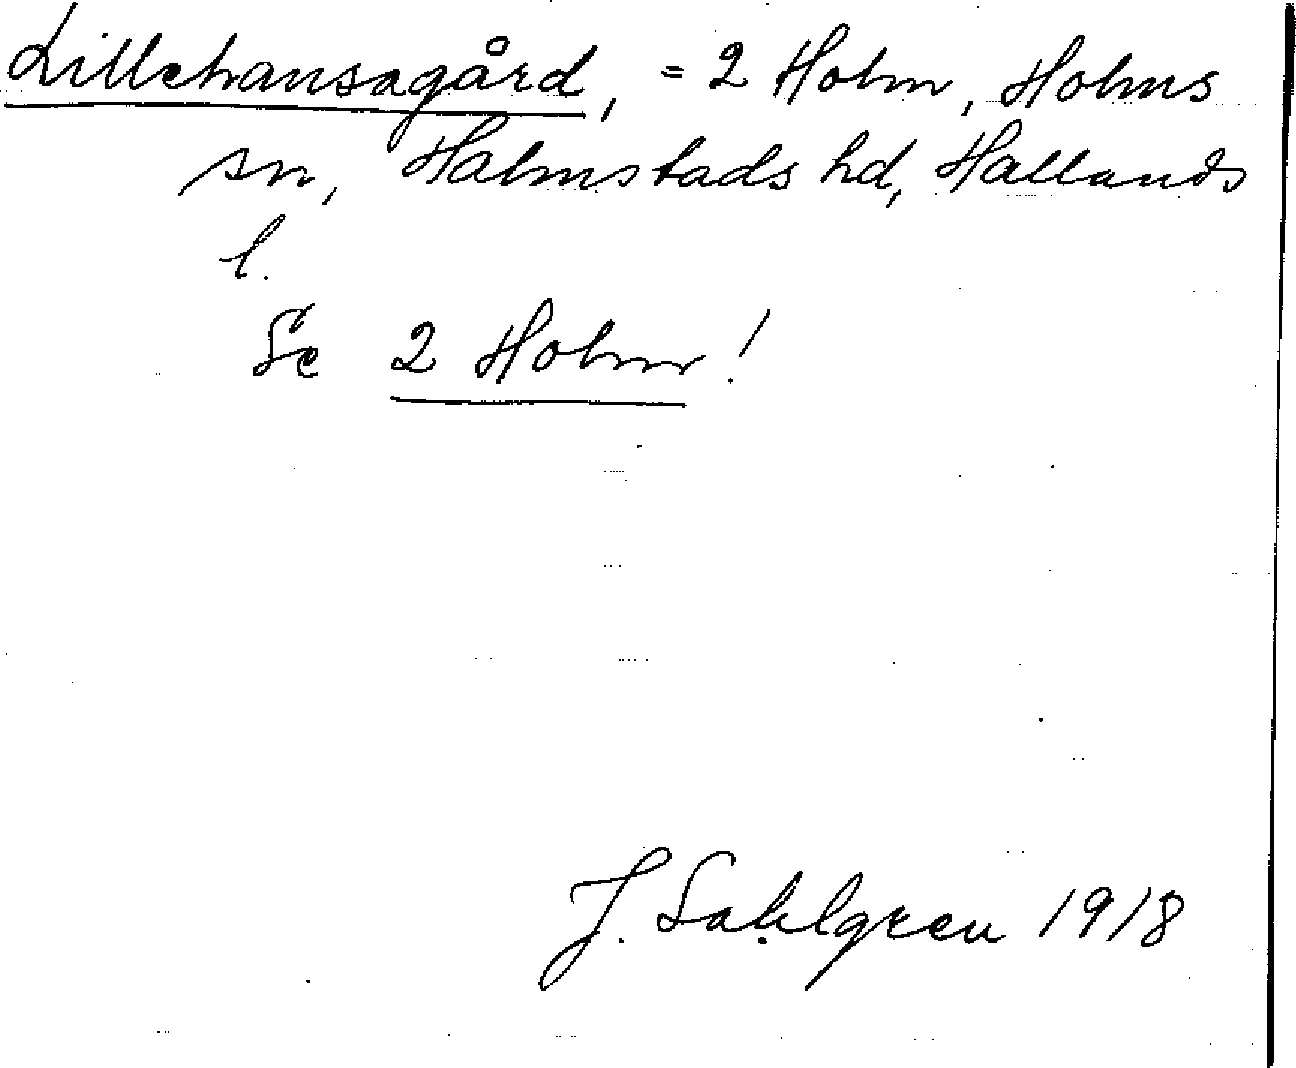 Lillehansagård, = 2 Holm, Holms
sn, Halmstads hd, Hallands
l.
Se 2 Holm!
J. Sahlgren 1918